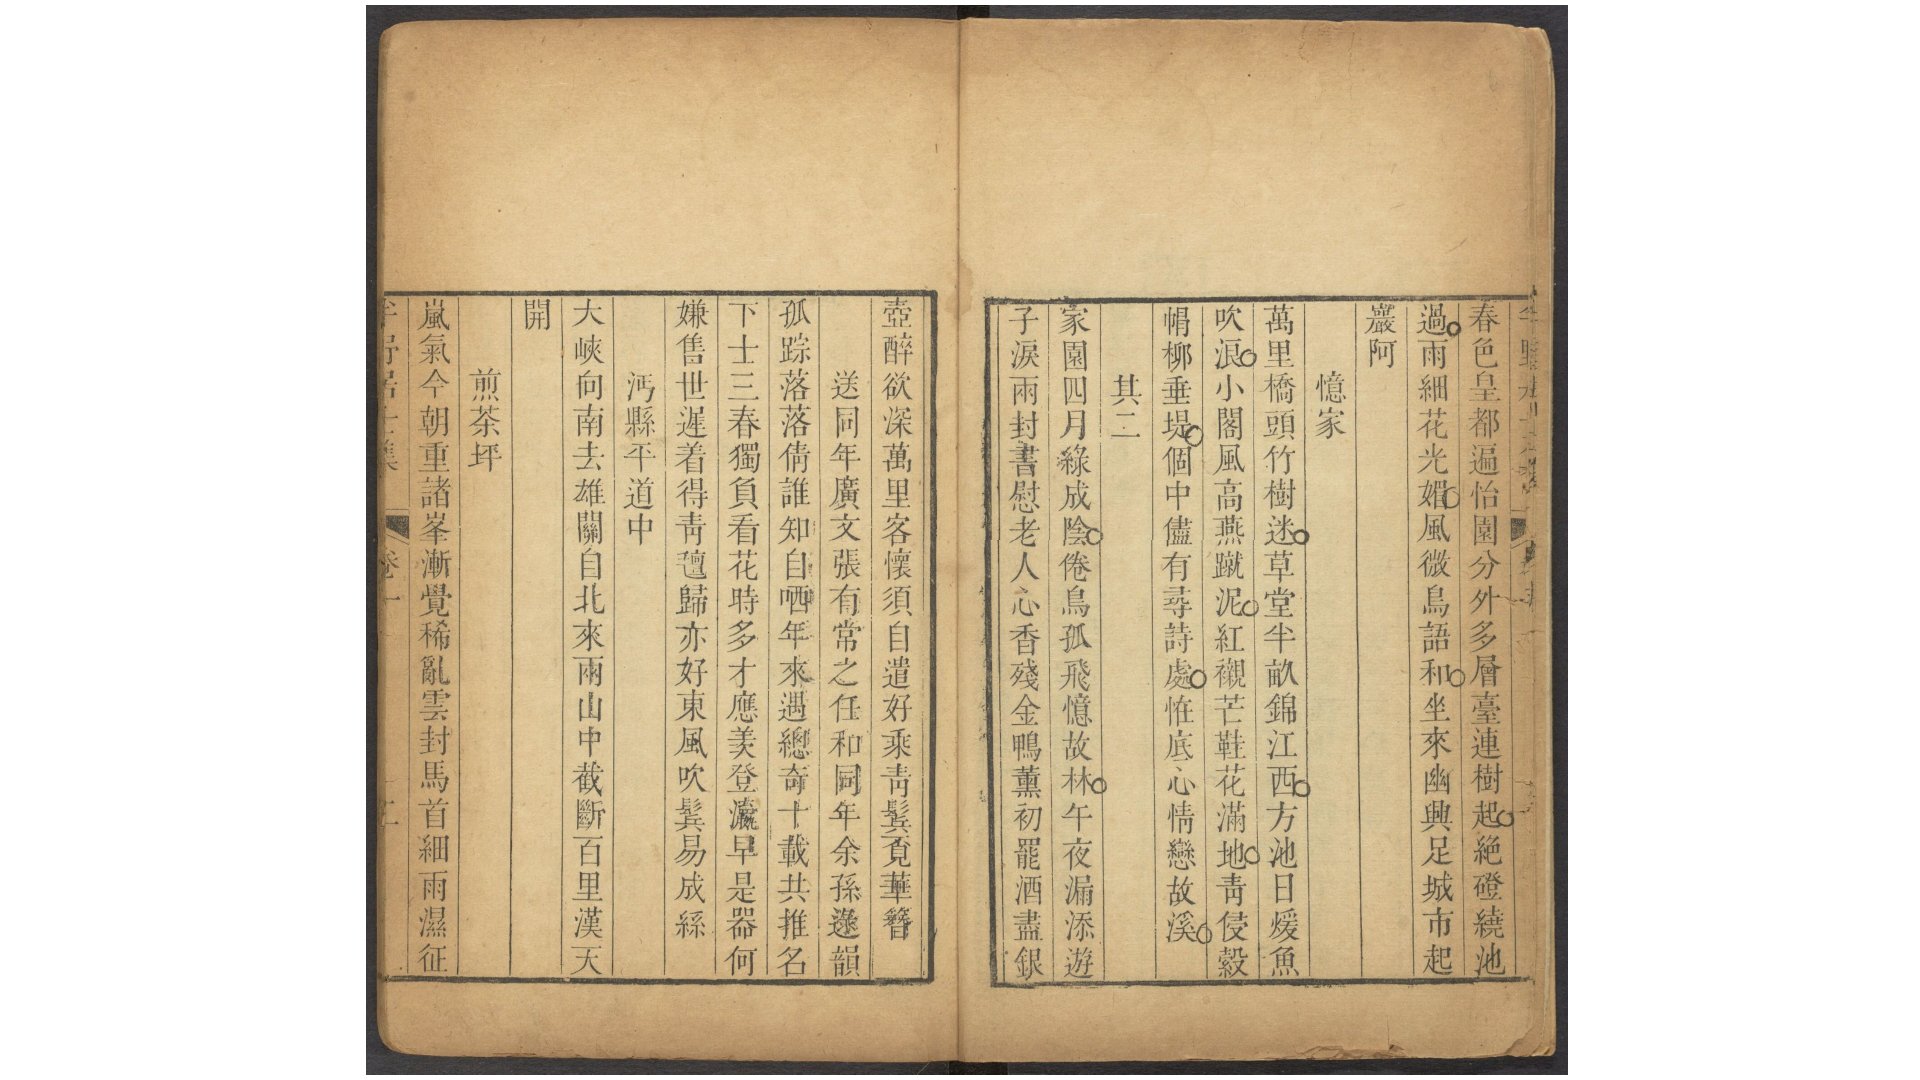 春色皇都遍怡園分外多層臺連樹起絶磴繞池
過雨細花光媚風微鳥語和坐來幽興足城市起
巖阿
憶家
萬里橋頭竹樹迷草堂半畝錦江西方池日煖魚
吹浪小閣風高燕蹴泥紅襯芒鞋花滿地青侵縠
帽柳垂堤個中儘有尋詩處恠底心情戀故溪
其二
家園四月綠成陰倦鳥孤飛憶故林午夜漏添遊
子淚兩封書慰老人心香殘金鴨薰初罷酒盡銀
壺醉欲深萬里客懷須自遣好乘青鬂覔華簪
送同年廣文張有常之任和同年余孫邃韻
孤踪落落倩誰知自哂年來遇總奇十載共推名
下士三春獨負看花時多才應羨登瀛早是器何
嫌售世遲着得青氊歸亦好東風吹鬂易成絲
沔縣平道中
大峽向南去雄關自北來兩山中截斷百里漢天
開
煎茶坪
嵐氣今朝重諸峯漸覺稀亂雲封馬首細雨濕征
卷一